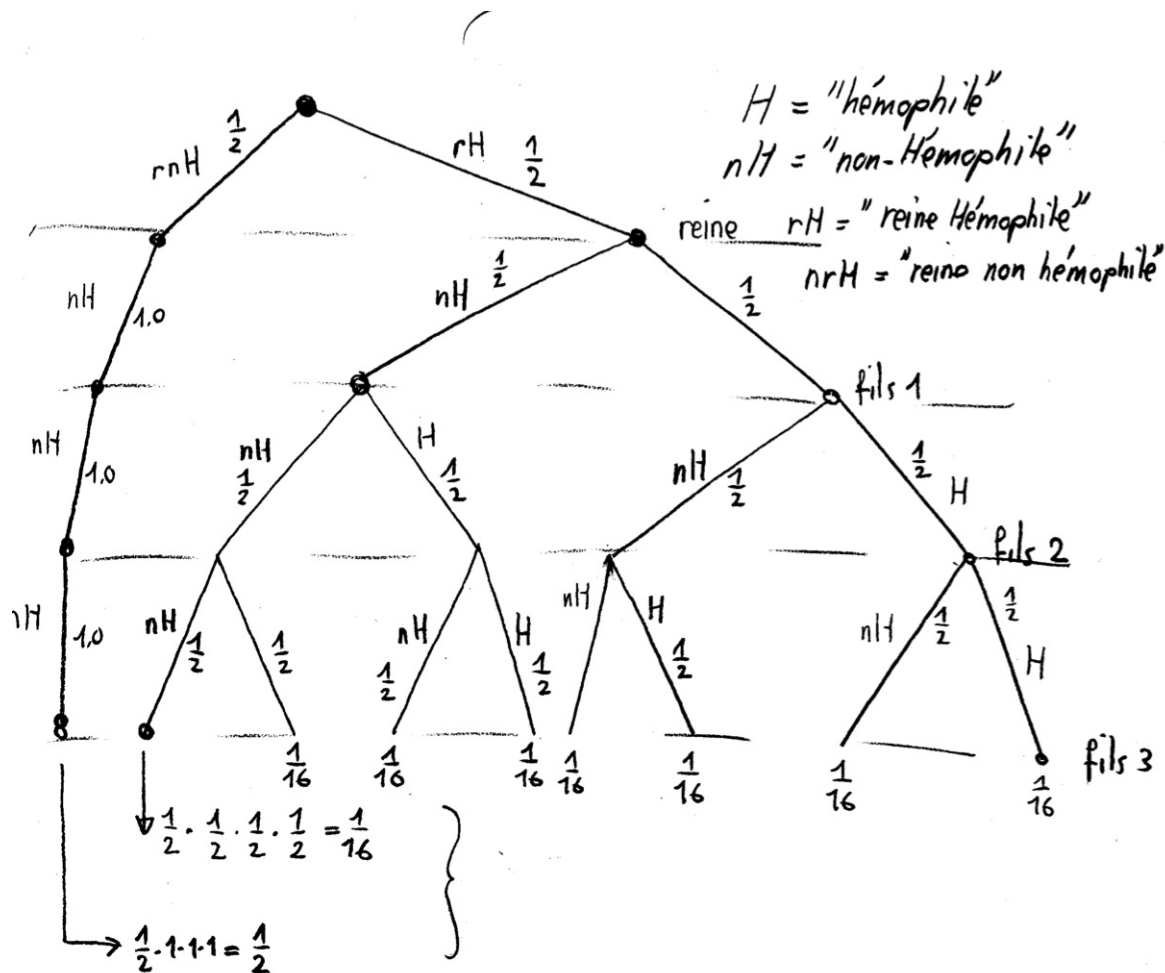 H = "hémophile"
nH = "non-Hémophile"
rH = "reine Hémophile"
nrH = "reine non hémophile"
rnH 1/2
rH 1/2
reine
nH 1,0
nH 1/2
1/2
fils 1
nH 1,0
nH 1/2
H 1/2
nH 1/2
1/2 H
fils 2
nH 1,0
nH 1/2
1/2
nH 1/2
H 1/2
nH
H 1/2
nH 1/2
1/2 H
fils 3
1/16
1/16
1/16
1/16
1/16
1/16
1/16
1/2 · 1/2 · 1/2 · 1/2 = 1/16
1/2 · 1 · 1 · 1 = 1/2